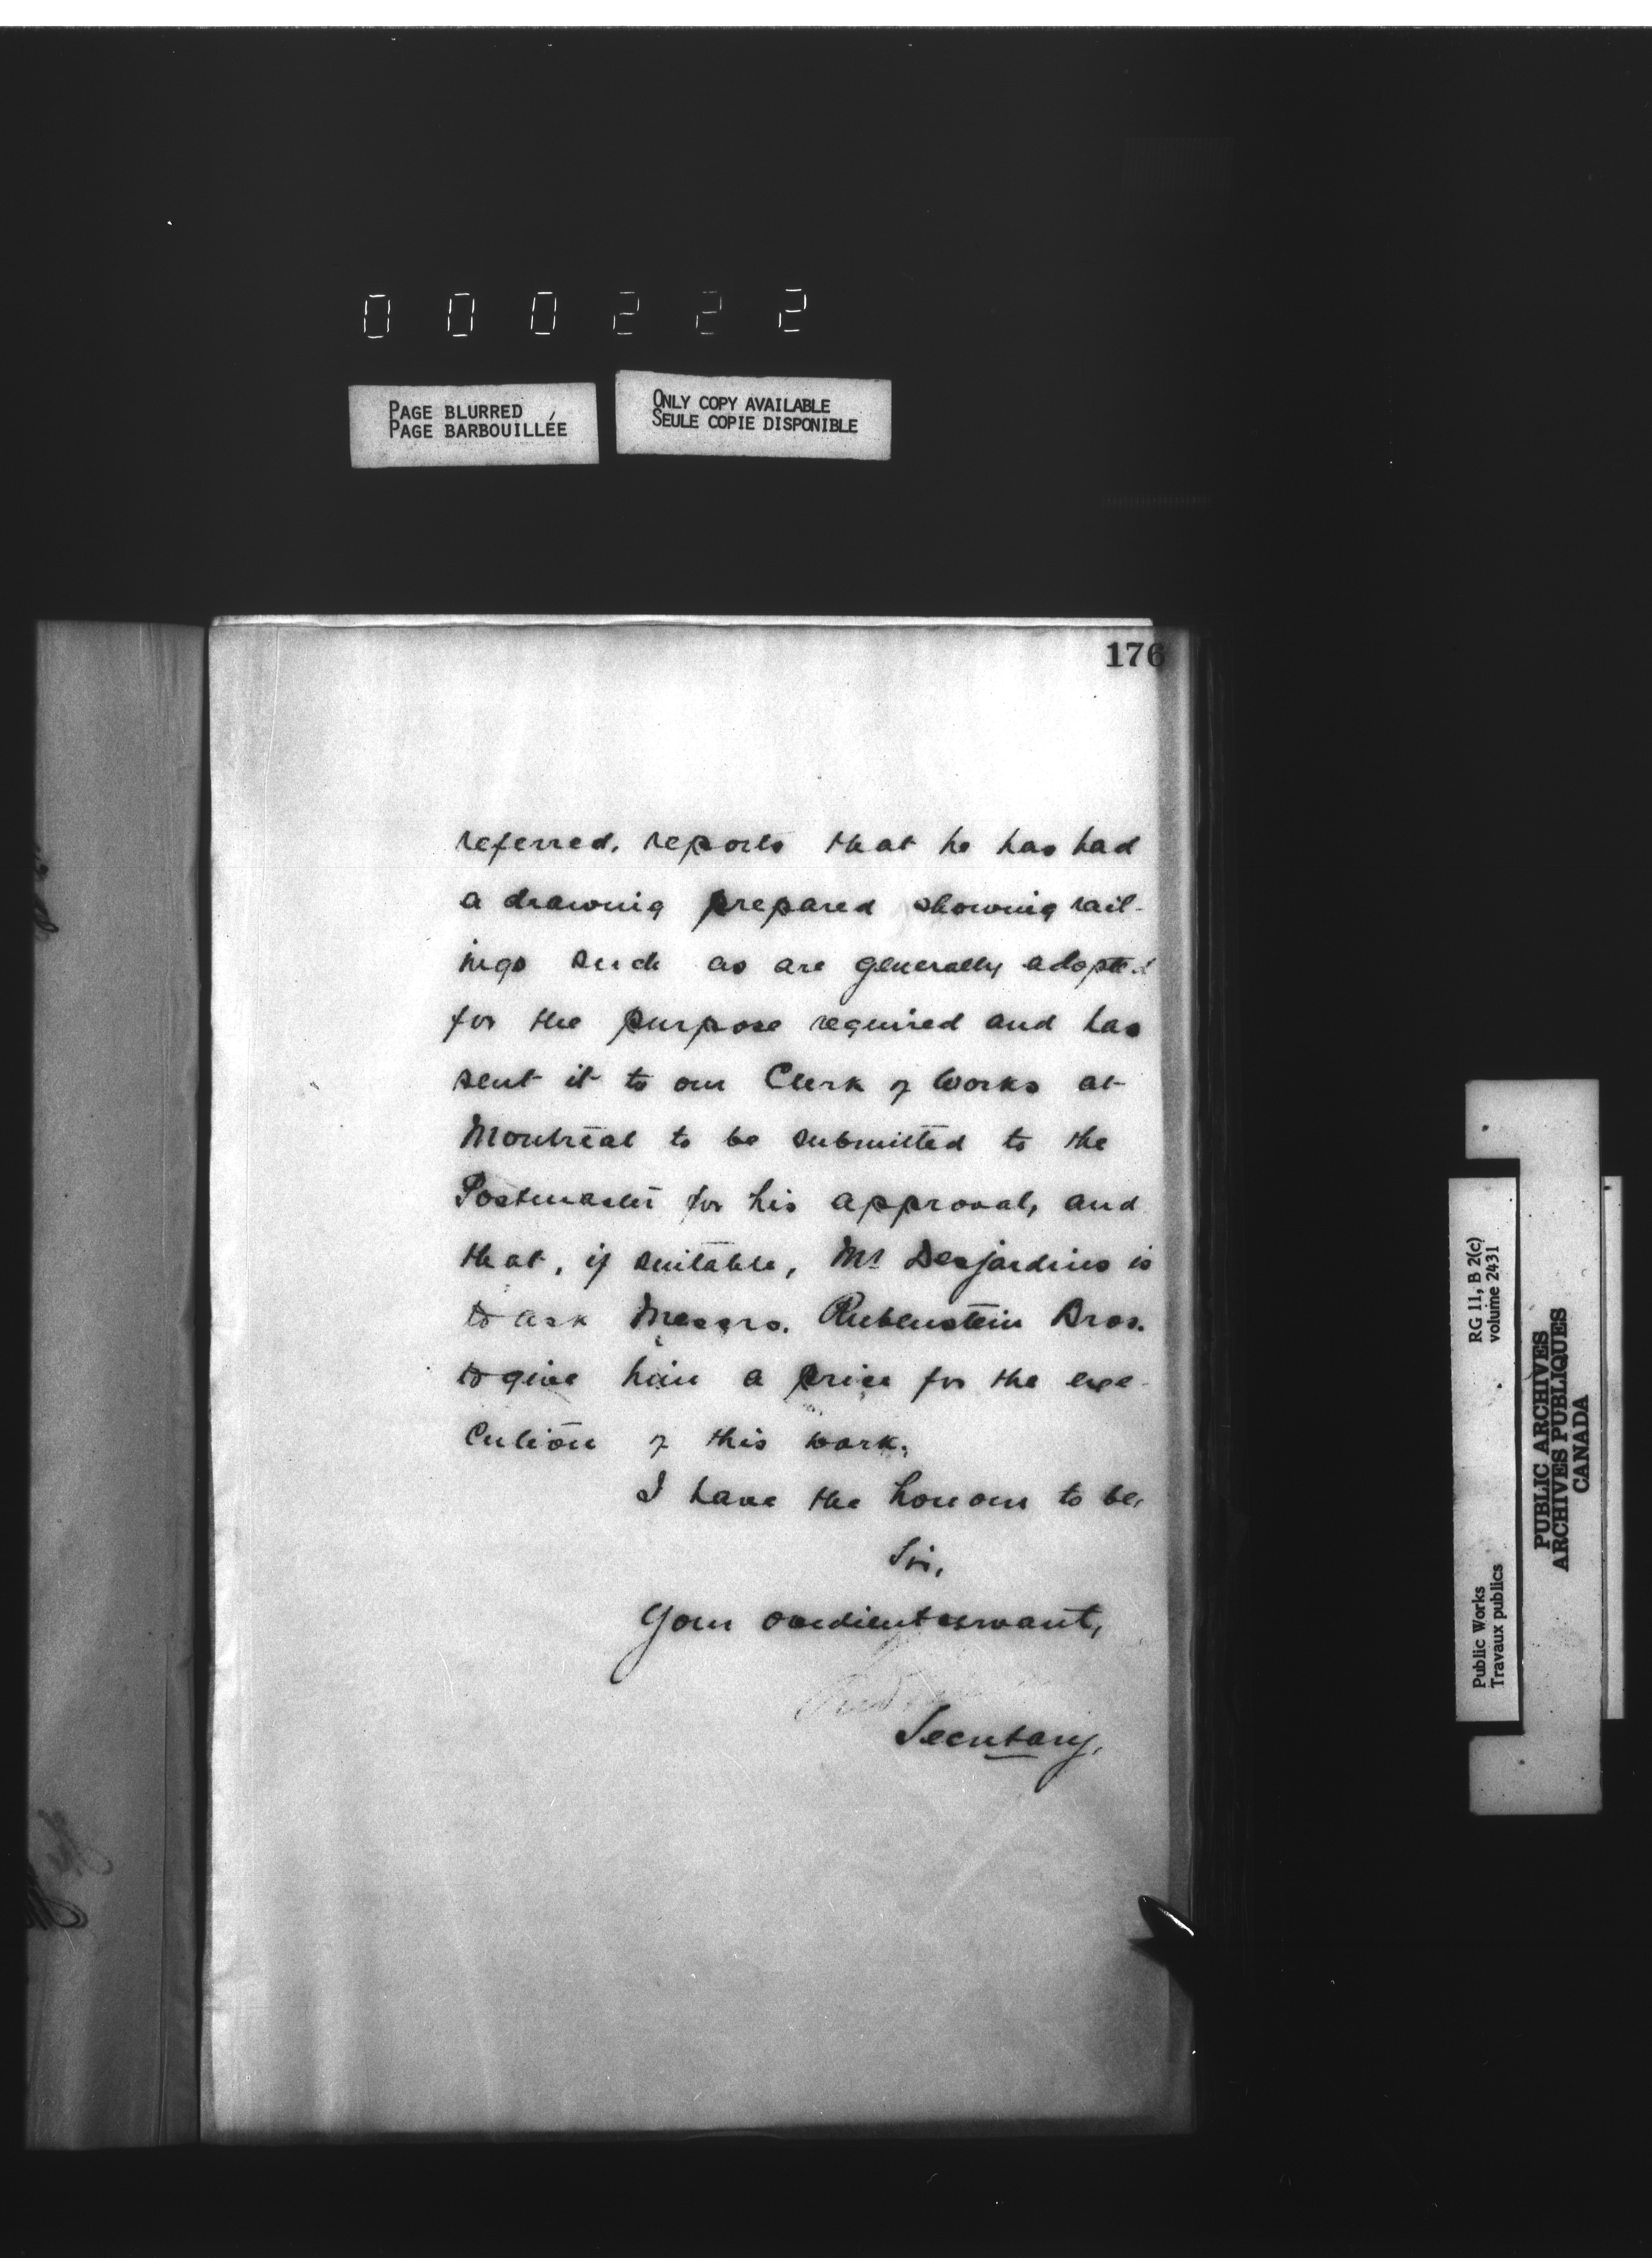 000222
PAGE BLURRED
PAGE BARBOUILLÉE
ONLY COPY AVAILABLE
SEULE COPIE DISPONIBLE
176
referred, reports that he has had
a drawing prepared showing rail-
ings such as are generally adopted
for the purpose required and has
sent it to our Clerk of Works at
Montreal to be submitted to the
Postmaster for his approval, and
that, if suitable, Mr Desjardins is
to ask Messrs. Rubenstein Bros.
to give him a price for the exe-
cution of this work.
I have the honour to be,
Sir,
Your obedient servant,
Secretary.
RG 11, B 2(c)
volume 2431
Public Works
Travaux publics
PUBLIC ARCHIVES
ARCHIVES PUBLIQUES
CANADA